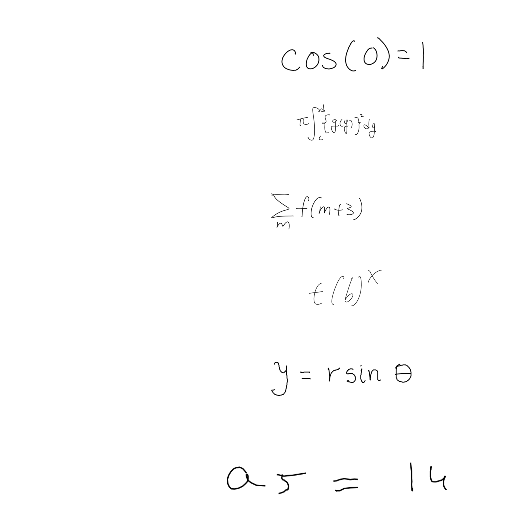 cos(0)=1
π∫_c^d {g(y)}^2 dy
∑_m f(m+3)
t(b)^x
y = r sin θ
a5 = 14